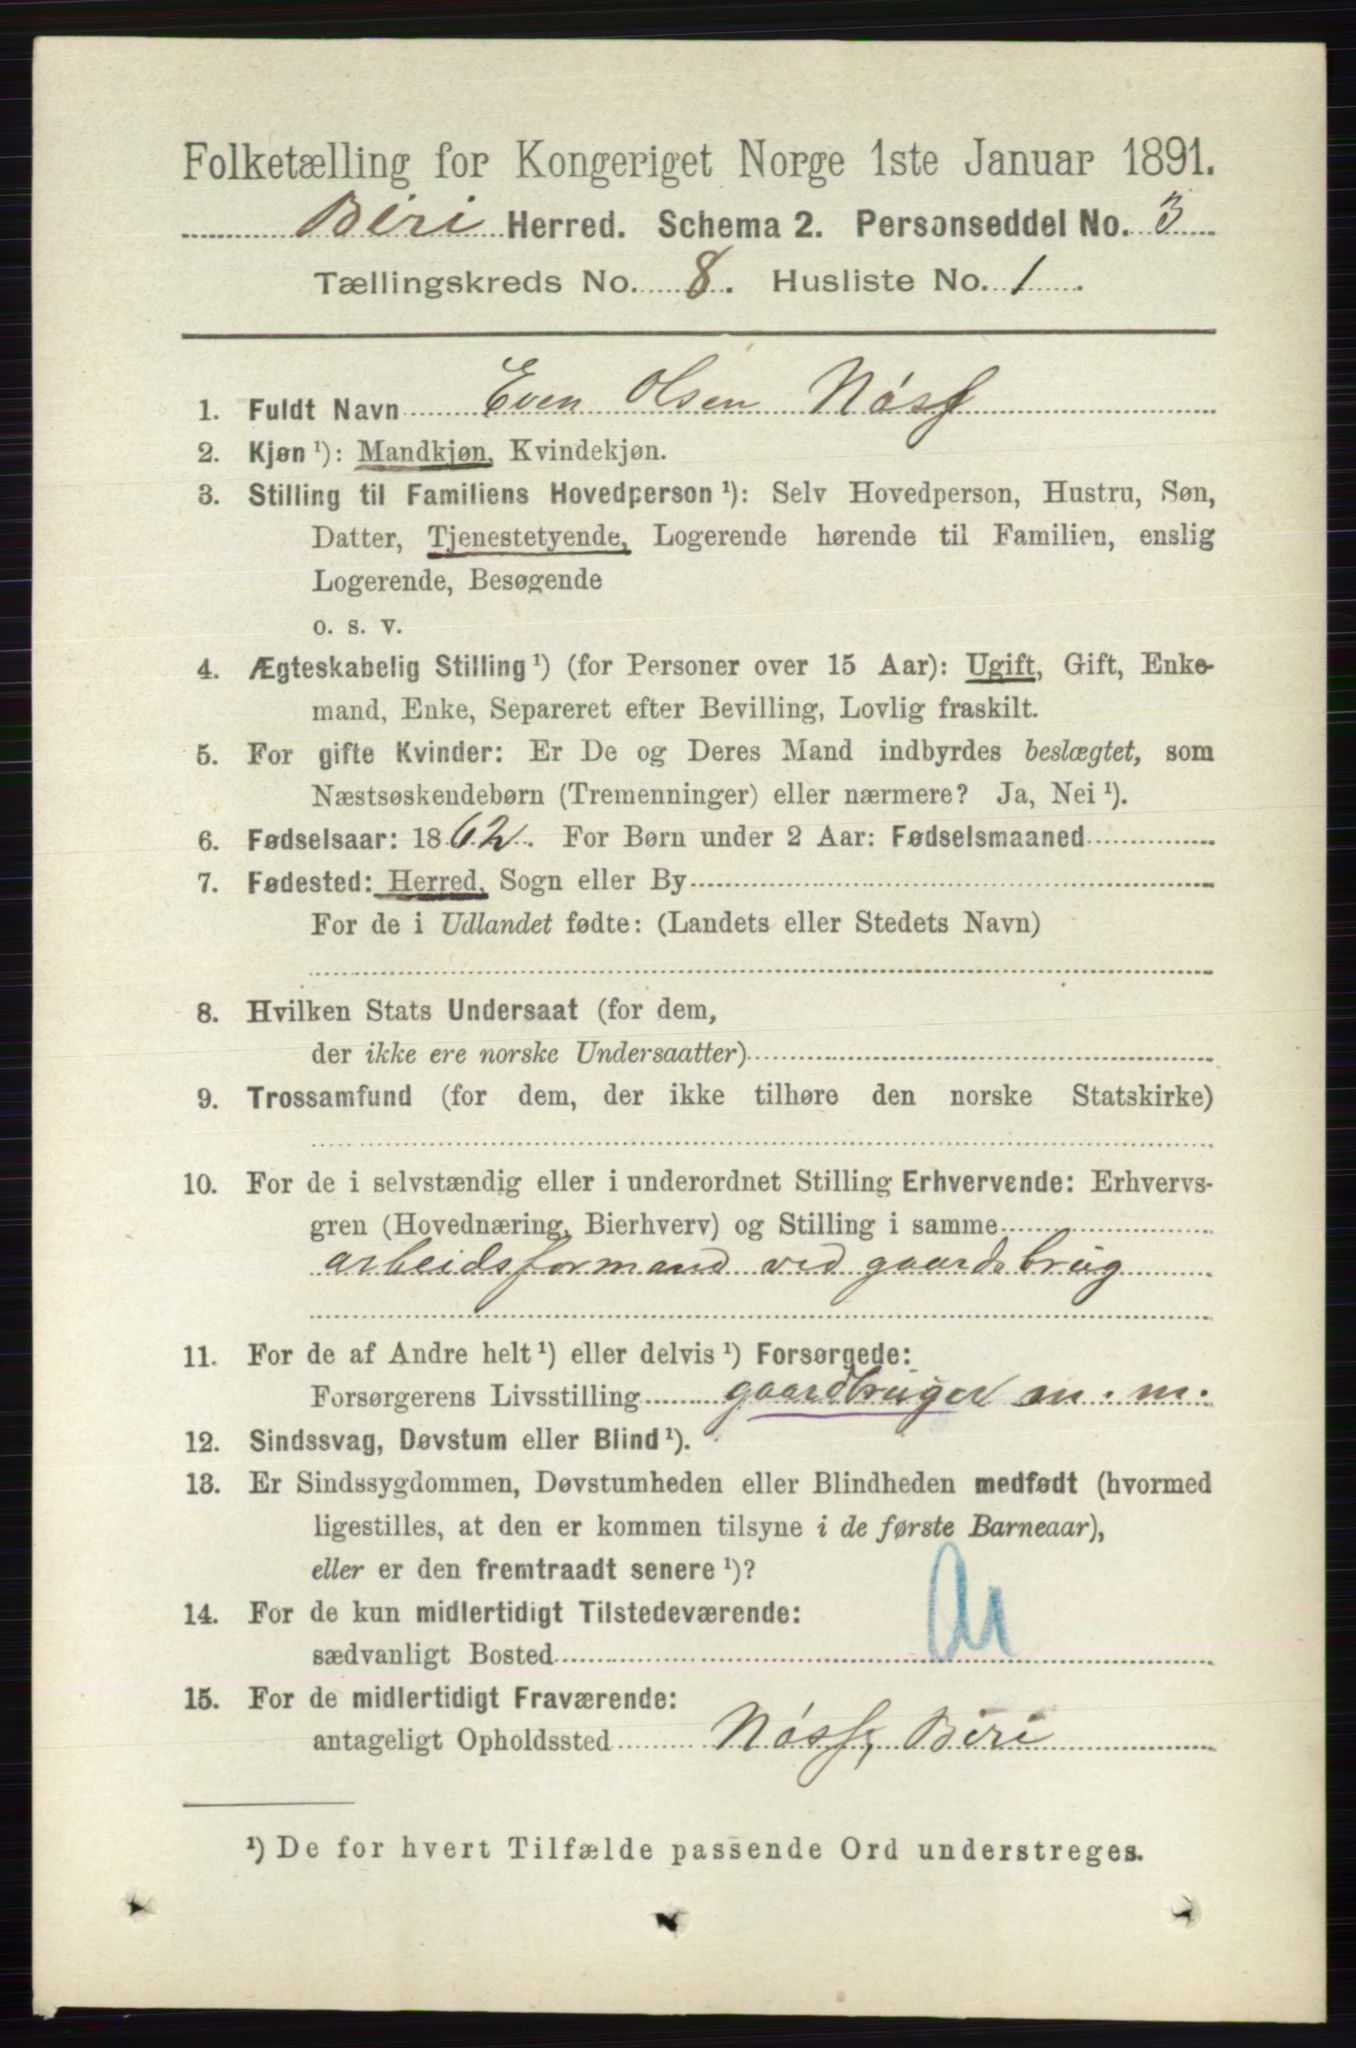 Folketælling for Kongeriget Norge 1ste Januar 1891.
Biri Herred. Schema 2. Personseddel No. 3
Tællingskreds No. 8. Husliste No. 1.
1. Fuldt Navn Even Olsen Nøss
2. Kjøn ¹): Mandkjøn, Kvindekjøn.
3. Stilling til Familiens Hovedperson ¹): Selv Hovedperson, Hustru, Søn,
Datter, Tjenestetyende, Logerende hørende til Familien, enslig
Logerende, Besøgende
o. s. v.
4. Ægteskabelig Stilling ¹) (for Personer over 15 Aar): Ugift, Gift, Enke-
mand, Enke, Separeret efter Bevilling, Lovlig fraskilt.
5. For gifte Kvinder: Er De og Deres Mand indbyrdes beslægtet, som
Næstsøskendebørn (Tremenninger) eller nærmere? Ja, Nei ¹).
6. Fødselsaar: 1862. For Børn under 2 Aar: Fødselsmaaned
7. Fødested: Herred, Sogn eller By
For de i Udlandet fødte: (Landets eller Stedets Navn)
8. Hvilken Stats Undersaat (for dem,
der ikke ere norske Undersaatter)
9. Trossamfund (for dem, der ikke tilhøre den norske Statskirke)
10. For de i selvstændig eller i underordnet Stilling Erhvervende: Erhvervs-
gren (Hovednæring, Bierhverv) og Stilling i samme
arbeidsformand ved gaardsbrug
11. For de af Andre helt ¹) eller delvis ¹) Forsørgede:
Forsørgerens Livsstilling gaardbruger m. m.
12. Sindssvag, Døvstum eller Blind ¹).
13. Er Sindssygdommen, Døvstumheden eller Blindheden medfødt (hvormed
ligestilles, at den er kommen tilsyne i de første Barneaar),
eller er den fremtraadt senere ¹)?
14. For de kun midlertidigt Tilstedeværende:
sædvanligt Bosted
15. For de midlertidigt Fraværende:
antageligt Opholdssted Nøss, Biri
¹) De for hvert Tilfælde passende Ord understreges.